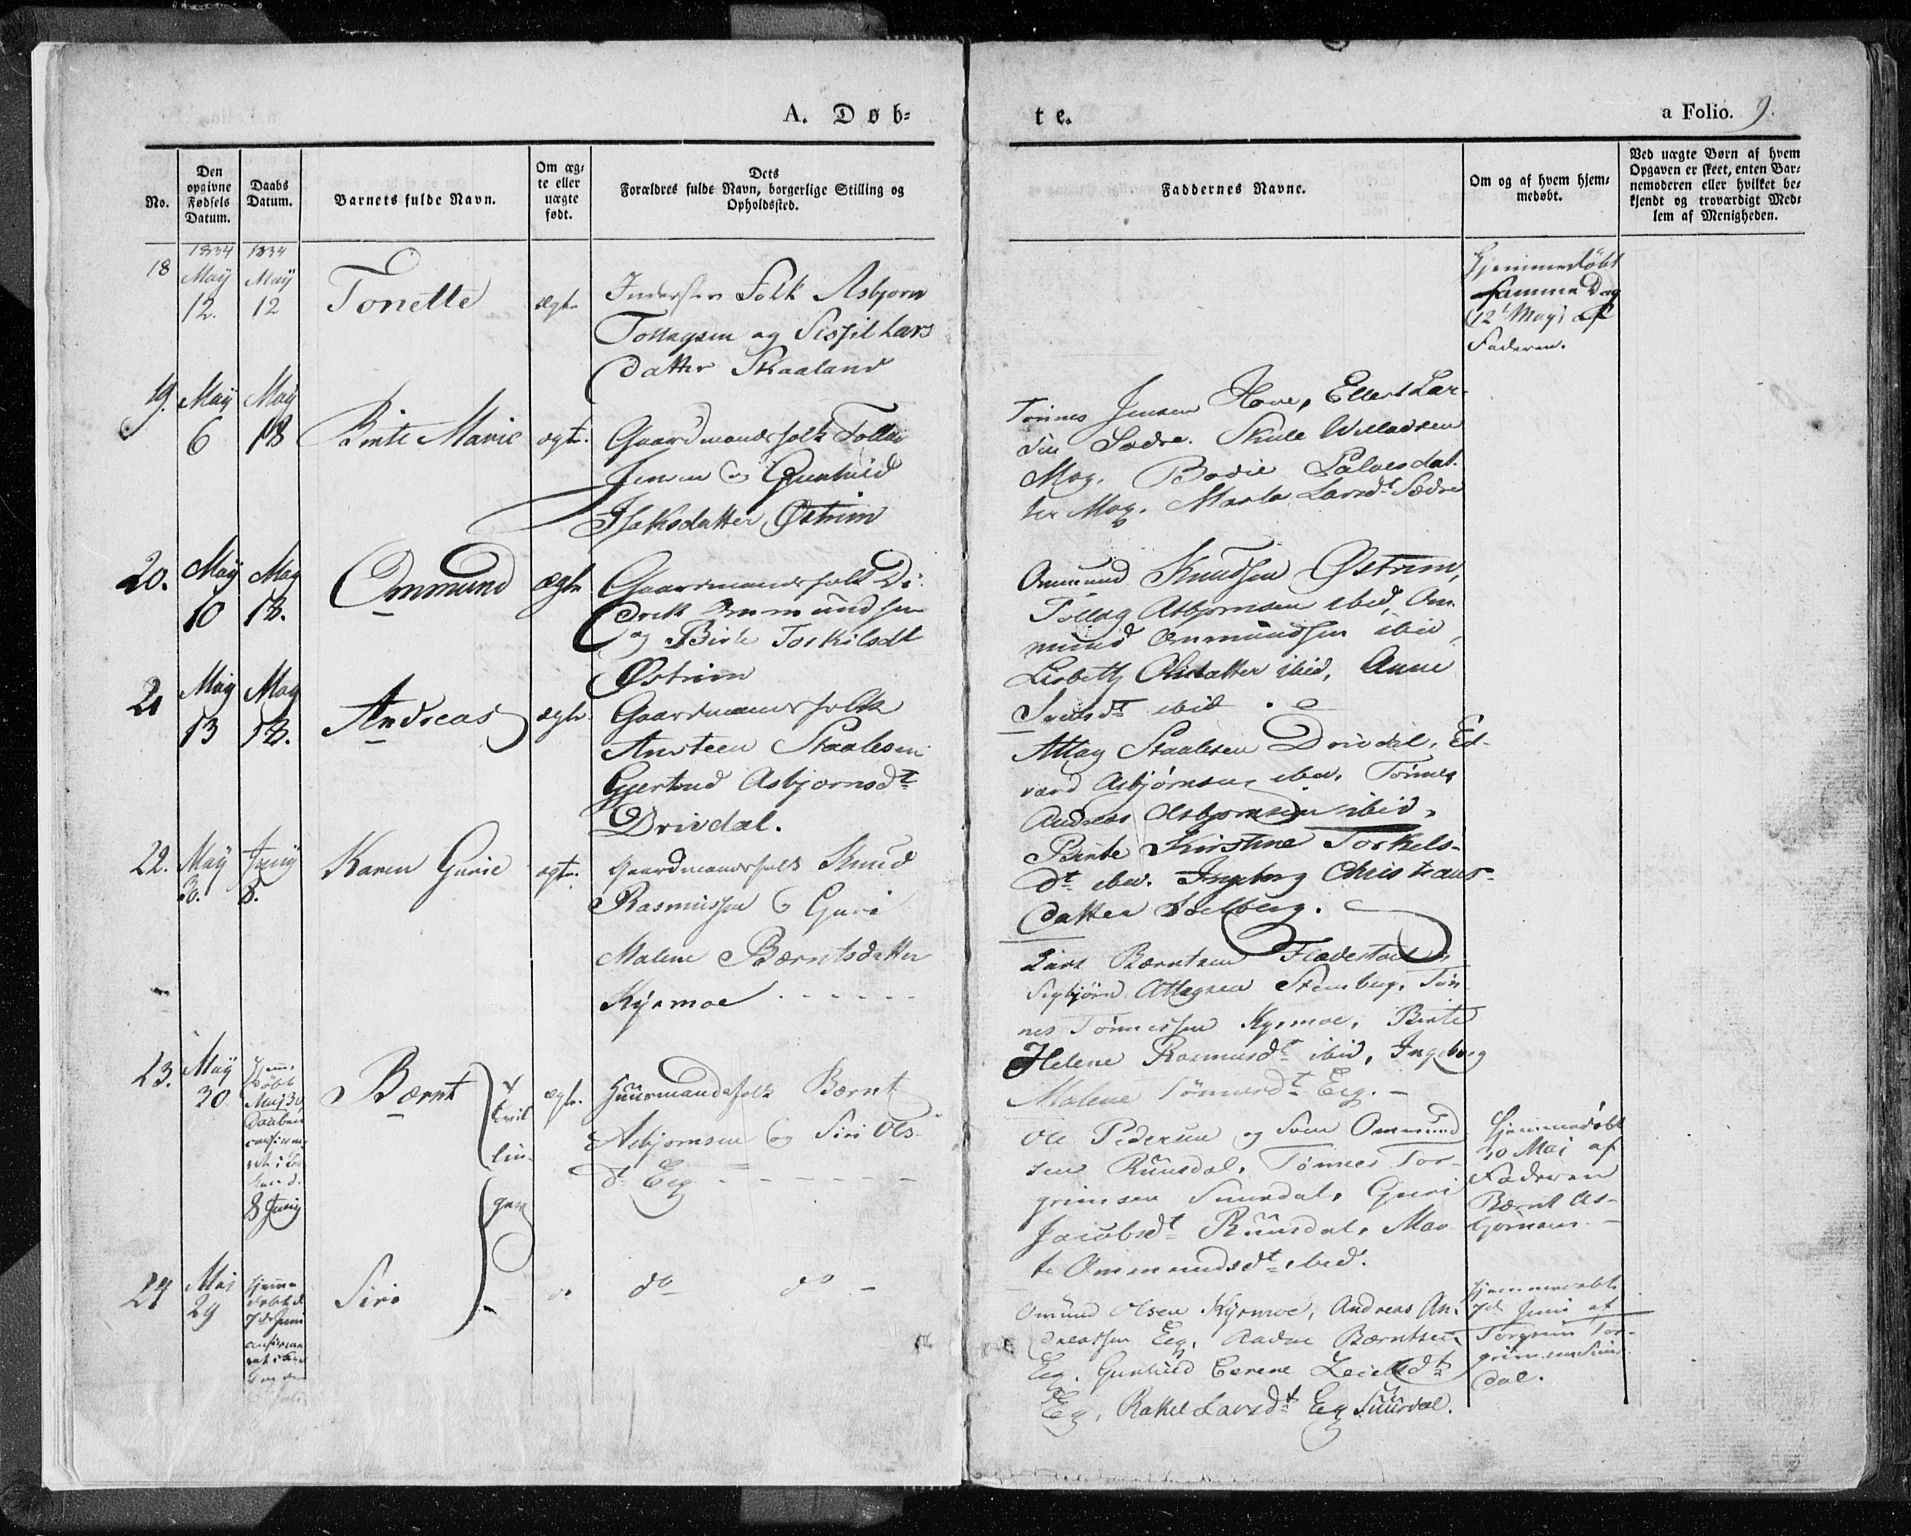 A. Døb-
te.
a Folio. 9.
No.
Den opgivne Fødsels Datum.
Daabs Datum.
Barnets fulde Navn.
Om æg-
te eller
uægte
født.
Dets
Forældres fulde Navn, borgerlige Stilling og
Opholdssted.
Faddernes Navne.
Om og af hvem hjem-
medøbt.
Ved uægte Børn af hvem
Opgaven er skeet, enten Bar-
nemoderen eller hvilket be-
kjendt og troværdigt Med-
lem af Menigheden.
1834 1834
18 Maÿ 12. Maÿ 12 Tonette ægte
Inderster Folk Asbjørn
Tollagsen og Sissil Lars
datter Skaaland
Hjemmedøbt
samme Dag
12t Maÿ af
Faderen.
19. Maÿ 6 May 18 Birte Marie ægte.
Gaardmandsfolk Tollag
Jensen og Gunhild
Isaksdatter, Østrim
Tønnes Jensen Hove, Ellert Lar-
sen Sædre. Skule Willadsen
Mog. Bodil Salvesdat-
ter Mog. Marta Larsdt Sædre
20. Maÿ 10 May 18. Ommund ægte
Gaardmandsfolk Di-
drik Ommundsen
og Birte Torkilsdt
Østrim
Ommund Knudsen Østrim,
Tollag Asbjørnsen ibid, Om-
mund Ommundsen ibid,
Lisbeth Olsdatter ibid, Anne
dt ibid.
21 Maÿ 13 May 18. Andreas ægte.
Gaardmandsfolk
Ansteen Staalesen
Gjertrud Asbjørnsdt
Drivdal.
Attag Staalesen Drivdal, Ed-
vard Asbjørnsen ibid. Tønnes
Andreas Asbjørnsen ibid,
Birte Kirstine Torkels-
dt ibid. Ingeborg Christians-
datter Solberg.
22. Maÿ 30. Junÿ 8. Karen Gurie ægte.
Gaardmandsfolk Knud
Rasmussen & Guri
Malene Bærntsdatter
Kÿrmoe
Lars Bærntsen Fladestad
Sigbjørn Attagsen Stemberg, Tøn-
nes Tønnessen Kyrmoe, Birte
Helene Rasmusdt ibid, Ingeborg
Malene Tønnesdt Eeg.
23. Maÿ 30
Hjemme
døbt
Maj 30,
Daaben
8 Junÿ
Bærnt
Tvil
lin-
ger
ægte.
Huusmandsfolk Bærnt
Asbjørnsen og Siri Ols-
dt Eeg
Ole Pedersen og Sven Ommund
sen Ruusdal, Tønnes Tor-
grimsen Suusdal, Guri
Jacobsdt Ruusdal, Mar-
te Ommundsdt ibid.
Hjemmedøbt
30 Maj af
Faderen
Bærnt As-
bjørnsen
24 Mai 29
Hjemme
døbt d.
7de Juni
Siri
do do
Omund Olsen Kyrmoe, Andreas An-
dreassen Eeg, Bærntsen
Eeg. Gunhild
Eeg, Rakel Larsdt Eeg
Hjemmedøbt
7de Juni af
Torgrim Tor-
grimsen
dal.